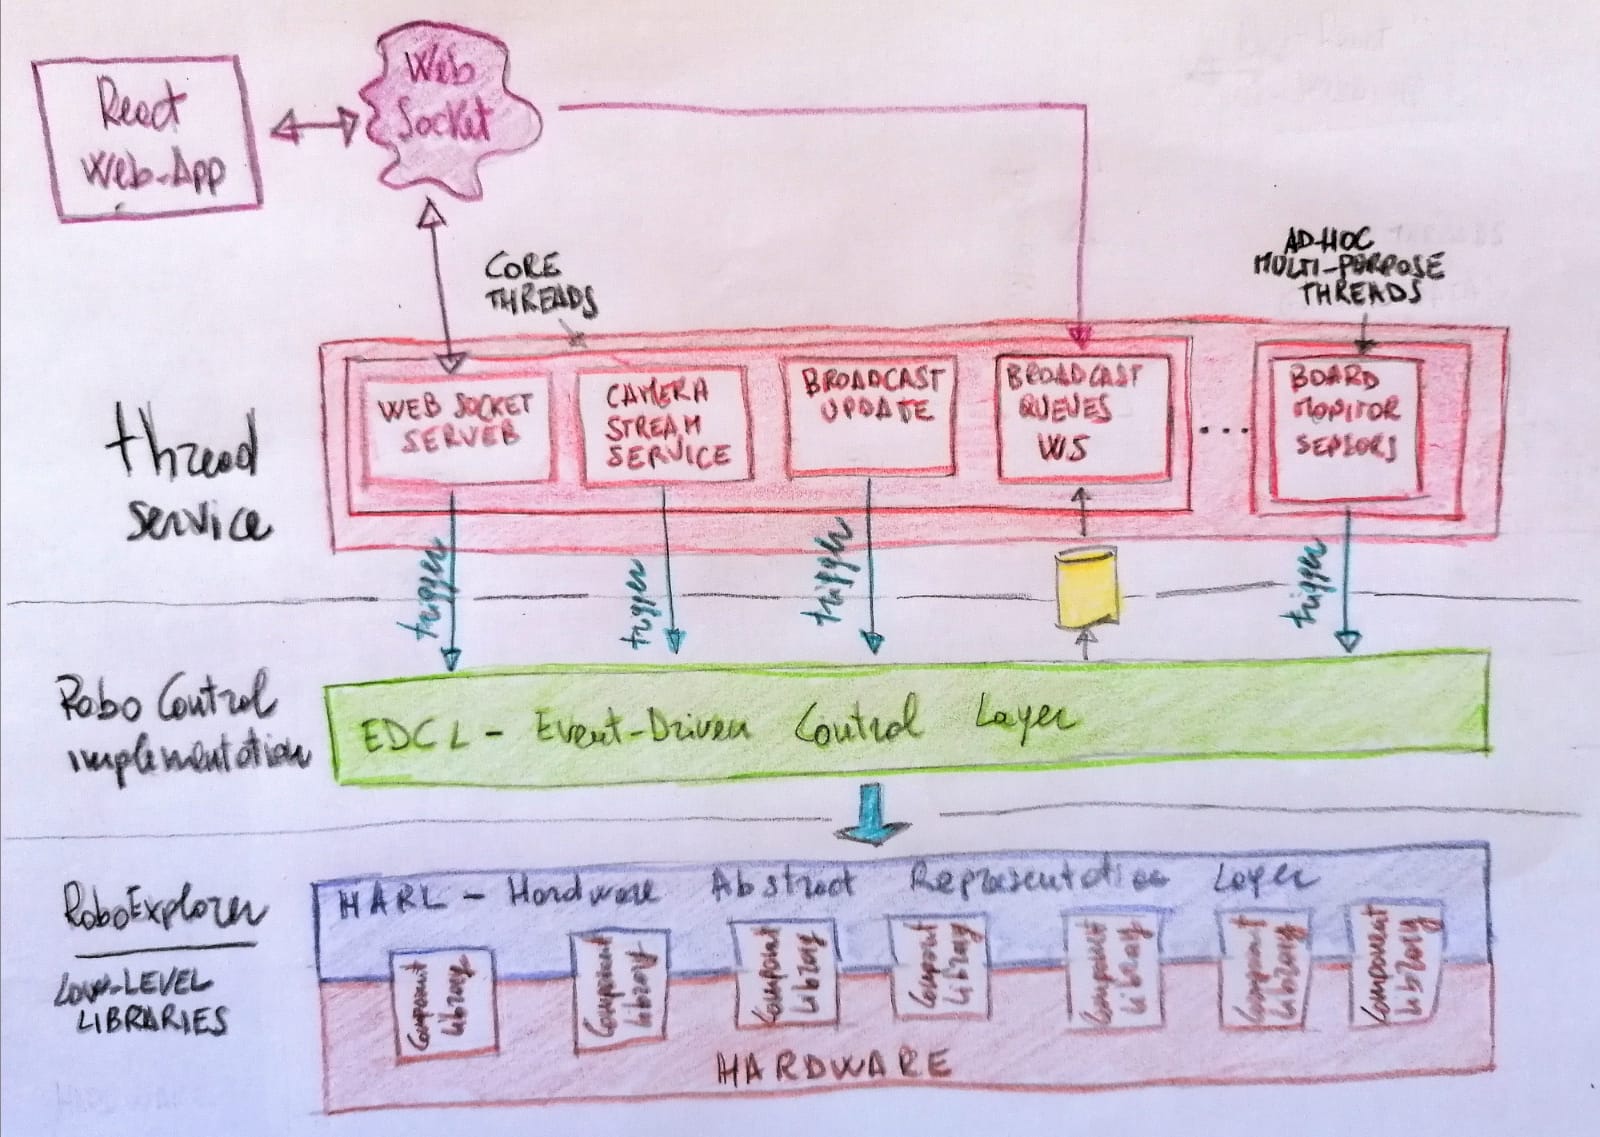 React
Web-App
Web
Socket
CORE
THREADS
AD-HOC
MULTI-PURPOSE
THREADS
thread
service
WEB SOCKET
SERVER
CAMERA
STREAM
SERVICE
BROADCAST
UPDATE
BROADCAST
QUEUES
WS
...
BOARD
MONITOR
trigger
trigger
trigger
trigger
Robo Control
implementation
EDCL - Event-Driven Control Layer
RoboExplorer
LOW-LEVEL
LIBRARIES
HARL - Hardware Abstract Representation Layer
Component
Library
Component
Library
Component
Library
Component
Library
Component
Library
Component
Library
Component
Library
HARDWARE